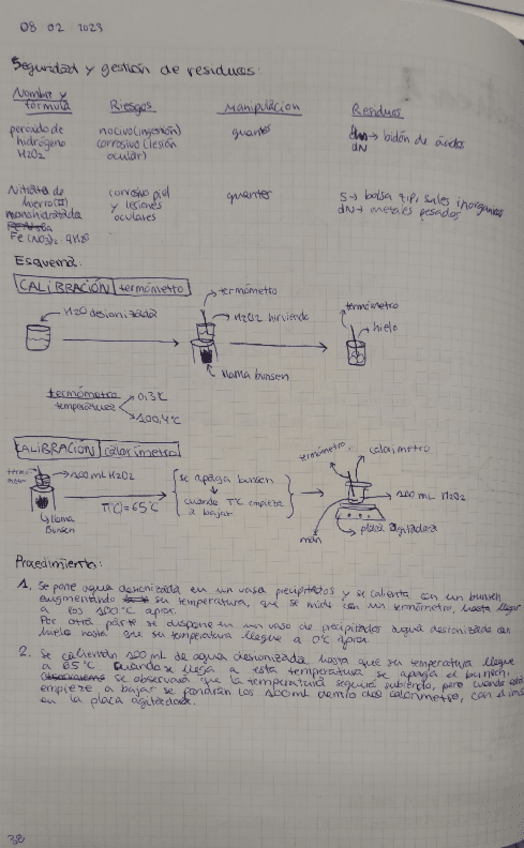 08 02 2023
Seguridad y gestión de residuos:
Nombre y fórmula Riesgos Manipulación Residuos
peróxido de nocivo (ingestión) guantes dn → bidón de ácidos
hidrógeno corrosivo (lesión
H2O2 ocular)
Nitrato de corrosivo piel guantes S → bolsa zip, sales inorgánicas
hierro(II) y lesiones dN → metales pesados
monohidratada oculares
Fe(NO3)2 · 9H2O
Esquema:
CALIBRACIÓN termómetro
H2O desionizada
termómetro
H2O2 hirviendo
llama bunsen
termómetro
hielo
termómetro
temperaturas
0,3ºC
100,4ºC
CALIBRACIÓN calorímetro
termómetro
100 mL H2O2
llama
Bunsen
T(C)=65ºC
se apaga bunsen
cuando TºC empieza
a bajar
termómetro
calorímetro
100 mL H2O2
placa agitadora
imán
Procedimiento:
1. Se pone agua desionizada en un vaso precipitados y se calienta con un bunsen
augmentando su temperatura, que se mide con un termómetro, hasta llegar
a los 100ºC aprox.
Por otra parte se dispone en un vaso de precipitados agua desionizada con
hielo hasta que su temperatura llegue a 0ºC aprox.
2. Se calientan 100 mL de agua desionizada hasta que su temperatura llegue
a 65ºC. Cuando se llega a esta temperatura se apaga el bunsen,
se observará que la temperatura seguirá subiendo, pero cuando esta
empieze a bajar se pondrán los 100 mL dentro del calorímetro, con el imán
en la placa agitadora.
38